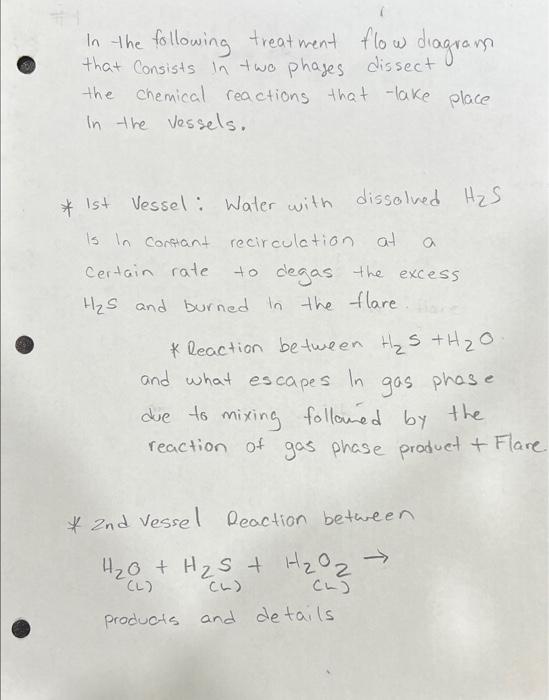 In the following treatment flow diagram
that Consists in two phases dissect
the chemical reactions that take place
In the Vessels.
* 1st Vessel: Water with dissolved H2S
Is In constant recirculation at a
Certain rate to degas the excess
H2S and burned in the flare.
* Reaction between H2S + H2O.
and what escapes In gas phase
due to mixing followed by the
reaction of gas phase product + Flare.
* 2nd Vessel Reaction between
H2O + H2S + H2O2 →
(L) (L) (L)
products and details